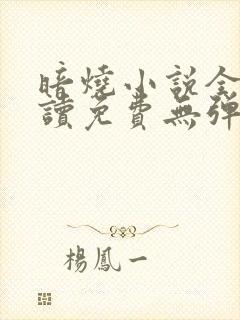 暗燒小說全
讀免費無彈
楊鳳一